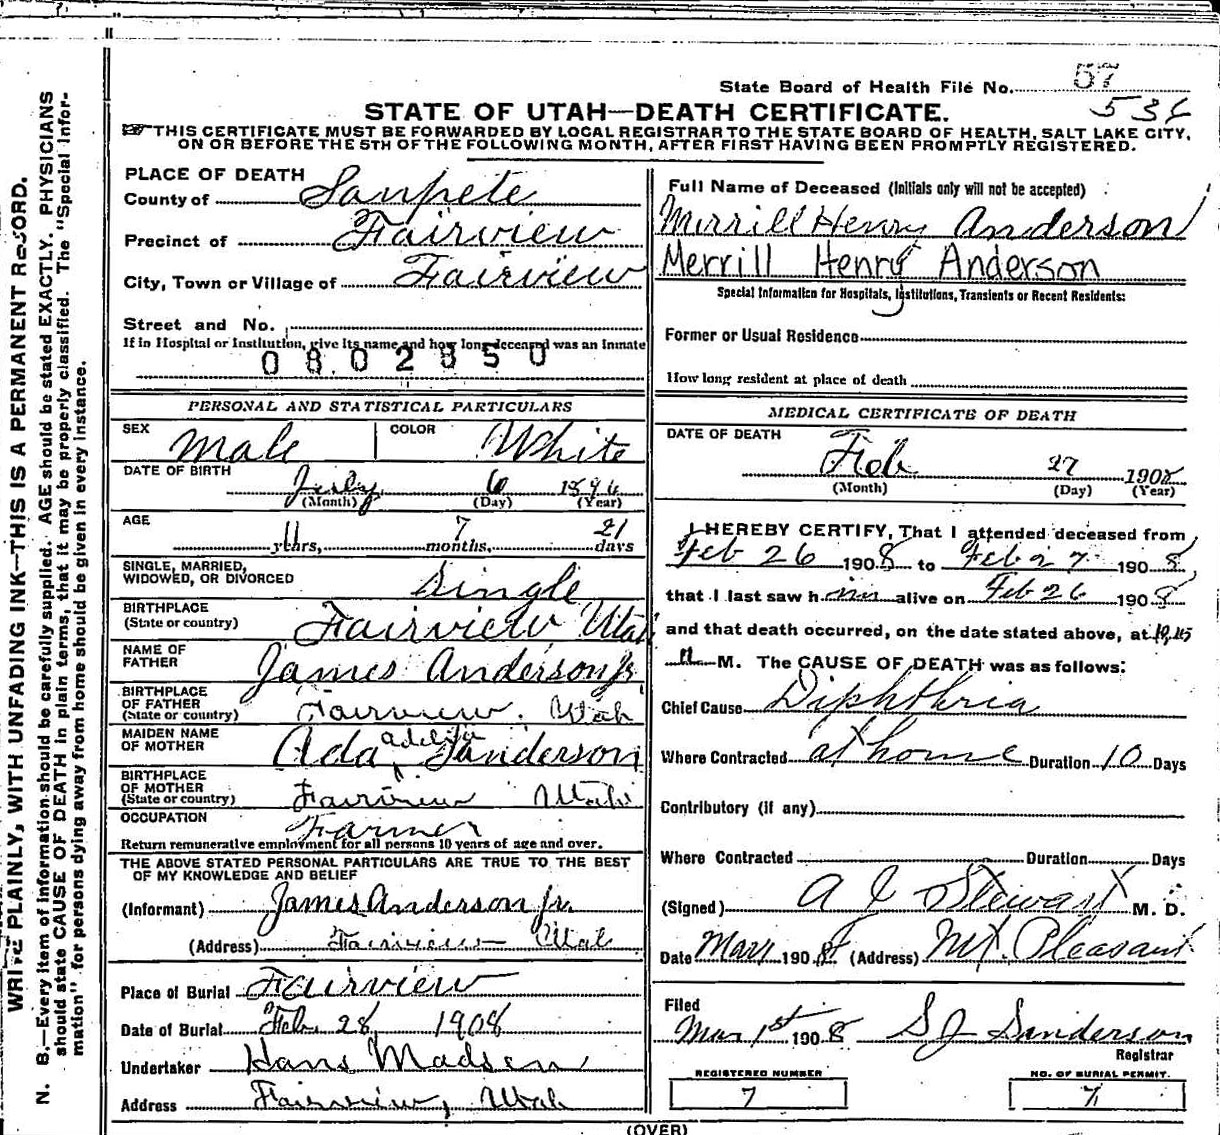 State Board of Health File No. 57
536
STATE OF UTAH—DEATH CERTIFICATE.
THIS CERTIFICATE MUST BE FORWARDED BY LOCAL REGISTRAR TO THE STATE BOARD OF HEALTH, SALT LAKE CITY,
ON OR BEFORE THE 5TH OF THE FOLLOWING MONTH, AFTER FIRST HAVING BEEN PROMPTLY REGISTERED.
WRITE PLAINLY, WITH UNFADING INK—THIS IS A PERMANENT RECORD.
N. B.—Every item of information should be carefully supplied. AGE should be stated EXACTLY. PHYSICIANS
should state CAUSE OF DEATH in plain terms, that it may be properly classified. The "Special Infor-
mation" for persons dying away from home should be given in every instance.
PLACE OF DEATH
County of Sanpete
Precinct of Fairview
City, Town or Village of Fairview
Street and No.
If in Hospital or Institution, give its name and how long deceased was an Inmate
0802850
PERSONAL AND STATISTICAL PARTICULARS
SEX Male COLOR White
DATE OF BIRTH July 6 1896
(Month) (Day) (Year)
AGE 11 years, 7 months, 21 days
SINGLE, MARRIED,
WIDOWED, OR DIVORCED Single
BIRTHPLACE
(State or country) Fairview Utah
NAME OF
FATHER James Anderson Jr
BIRTHPLACE
OF FATHER
(State or country) Fairview, Utah
MAIDEN NAME
OF MOTHER Ada Adelia Sanderson
BIRTHPLACE
OF MOTHER
(State or country) Fairview Utah
OCCUPATION Farmer
Return remunerative employment for all persons 10 years of age and over.
THE ABOVE STATED PERSONAL PARTICULARS ARE TRUE TO THE BEST
OF MY KNOWLEDGE AND BELIEF
(Informant) James Anderson Jr.
(Address) Fairview Utah
Place of Burial Fairview
Date of Burial Feb 28, 1908
Undertaker Hans Madsen
Address Fairview, Utah
Full Name of Deceased (Initials only will not be accepted)
Merrill Henry Anderson
Merrill Henry Anderson
Special Information for Hospitals, Institutions, Transients or Recent Residents:
Former or Usual Residence
How long resident at place of death
MEDICAL CERTIFICATE OF DEATH
DATE OF DEATH
Feb 27 1908
(Month) (Day) (Year)
I HEREBY CERTIFY, That I attended deceased from
Feb 26 1908 to Feb 27 1908,
that I last saw him alive on Feb 26 1908
and that death occurred, on the date stated above, at
M. The CAUSE OF DEATH was as follows:
Chief Cause Diphthria
Where Contracted at home Duration 10 Days
Contributory (if any)
Where Contracted Duration Days
(Signed) Stewart M. D.
Date Mar 1 1908 (Address) Mt. Pleasant
Filed
Mar 1st 1908 S J Sanderson
Registrar
REGISTERED NUMBER
7
NO. OF BURIAL PERMIT.
7
(OVER)